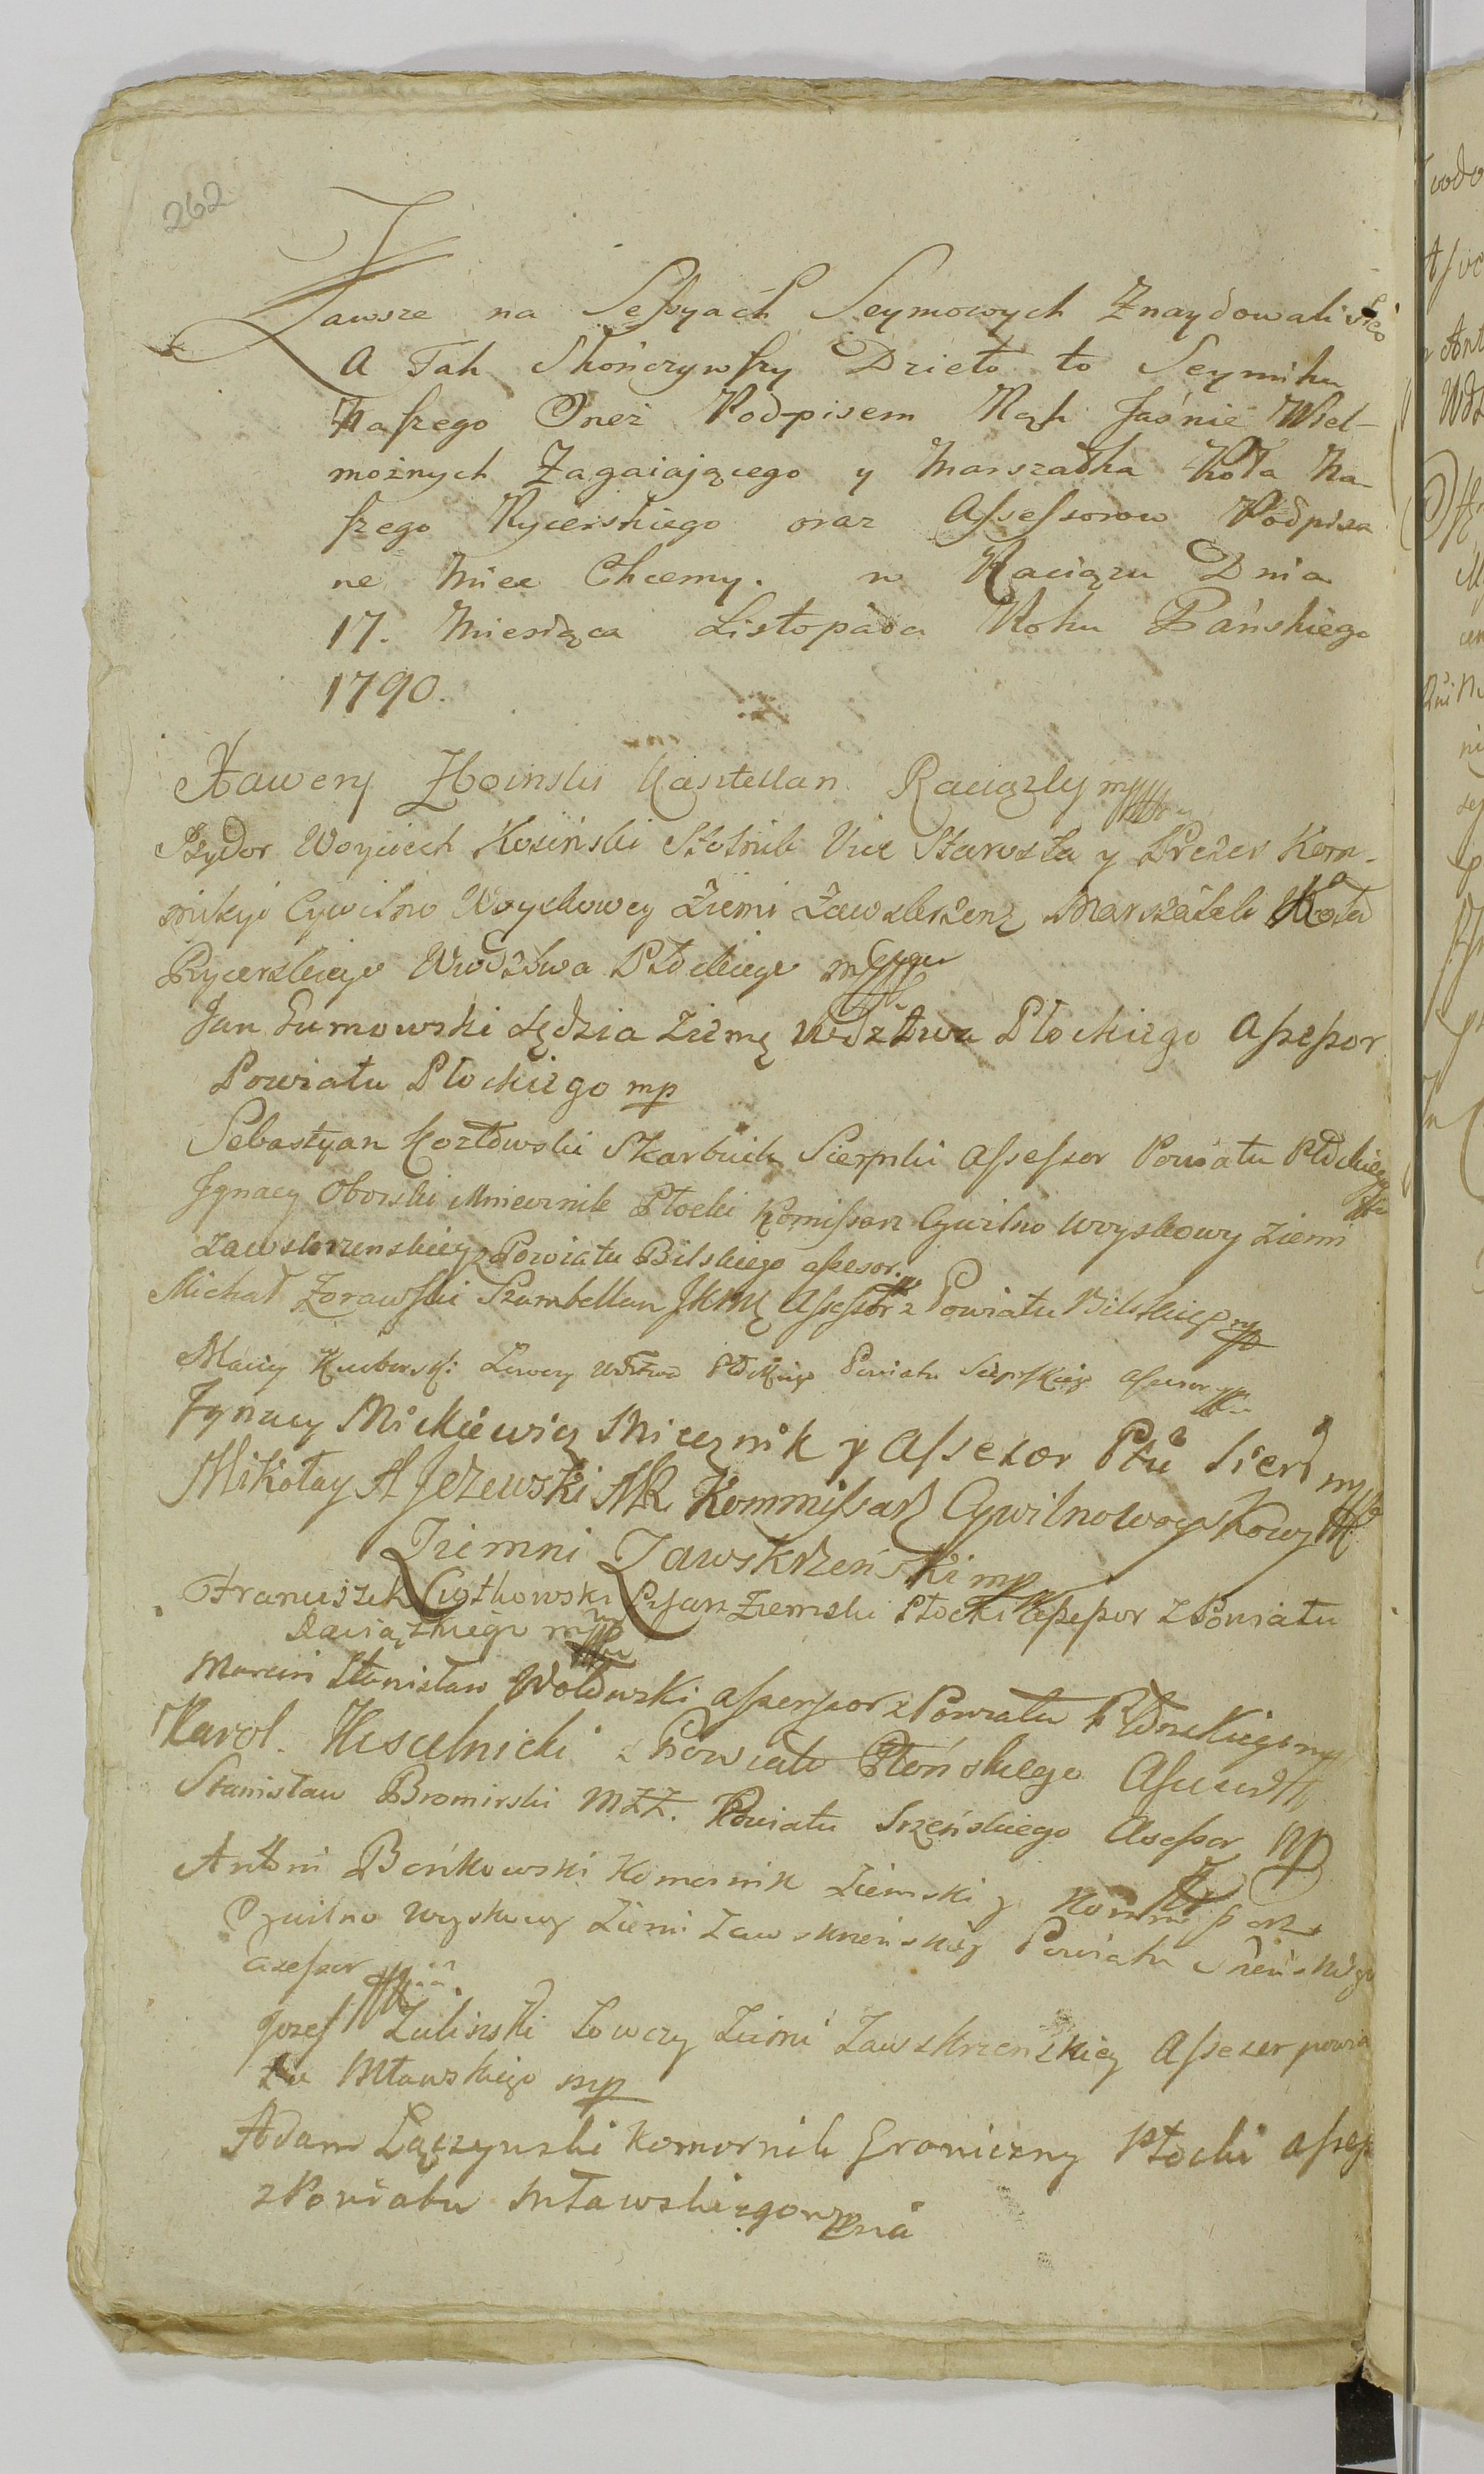 262
Zawsze na Sessyach Seymowych Znaydowali się
A Tak Skończywszy Dzieło to Seymiku
Naszego Oneż Podpisem Rąk Jaśnie Wiel-
możnych Zagaiaiącego y Marszałka Koła Na
szego Rycerskiego oraz Assessorow Podpisa
ne Miec Chcemy. w Raciązu Dnia
17. Miesiąca Listopada Roku Pańskiego
1790.
Xawery Zboinski Kasztellan Raciązky mp
Izydor Woyciech Kosiński Stolnik Vice Starosta y Prezes Kom-
missyi Cywilno Woyskowey Ziemi Zawskrzeń Marszałek Koła
Rycerskiego Wwdztwa Płockiego mp
Jan Sumowski Sędzia Ziemę Wdztwa Płockiego Assessor
Powiatu Płockiego mp
Sebastyan Kozłowski Skarbnik Sierpski Assessor Powiatu Płockiego
Ignacy Oborski Miecznik Płocki Komissarz Cywilno Woyskowy Ziemi
Zawskrzenskiey z Powiatu Bilskiego assesor
Michał Zorawski Szambellan JKMę Assessor z Powiatu Bilskieg mp
Maciey Łowczy Wdztwa Płckiego Powiatu Sieprskieg assesor
Ignacy Mickiewicz Miecznik y Assesor Ptu Sierp mp
Mikołay A Jeżewski MR Kommissarz Cywilnowoyskowy
Ziemni Zawskrzeński mp
Franciszek Ciołkowski Pisarz Ziemski Płocki Assessor z Powiatu
Raciązkiego mp
Marcin Stanisław Wołowski assessor z Powiatu Płonskiego mp
Karol Kisielnicki z Powiatu Płońskiego Assesor
Stanisław Bromirski MZZ. Powiatu Srzeńskiego Asessor Mp
Antoni Bońkowski Komornik Ziemski y Kommissarz
Cywilno woyskowy Ziemi Zawskrzeńskiey Powiatu Sreńskiego
asessor
Jozef Zulinski Łowczy Ziemi Zawskrzenskiey Assesor powia
tu Mławskiego mp
Adam Łączynski Komornik Graniczny Płocki assess
z Powiatu Mławskiego